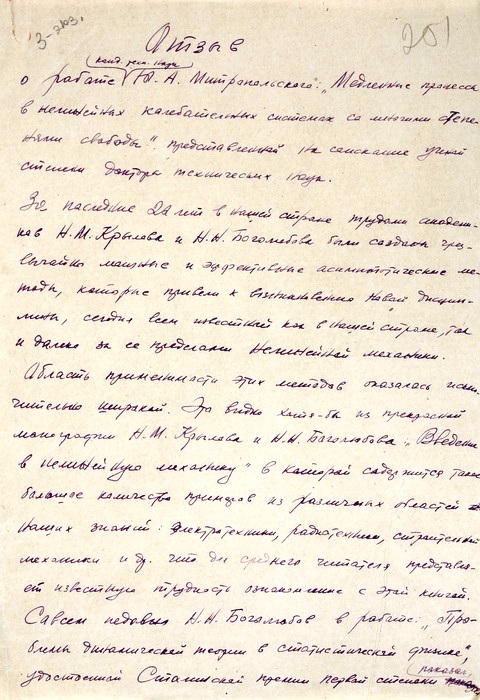 3-экз.
251
Отзыв
канд. тех. наук
о работе Ю.А. Митропольского: „Медленные процессы
в нелинейных колебательных системах со многими степе-
нями свободы", представленной на соискание ученой
степени доктора технических наук.
За последние 20 лет в нашей стране трудами академи-
ков Н.М. Крылова и Н.Н. Боголюбова были созданы чрез-
вычайно мощные и эффективные асимптотические ме-
тоды, которые привели к возникновению новой дисцип-
лины, сегодня всем известной как в нашей стране, так
и далеко за ее пределами нелинейной механики.
Область применимости этих методов оказалась исклю-
чительно широкой. Это видно хотя-бы из прекрасной
монографии Н.М. Крылова и Н.Н. Боголюбова: „Введение
в нелинейную механику" в которой содержится такое
большое количество примеров из различных областей
наших знаний: электротехники, радиотехники, строительной
механики и др. что для среднего читателя представля-
ет известную трудность ознакомление с этой книгой.
Совсем недавно Н.Н. Боголюбов в работе: „Про-
блемы динамической теории в статистической физике",
удостоенной Сталинской премии первой степени показал,